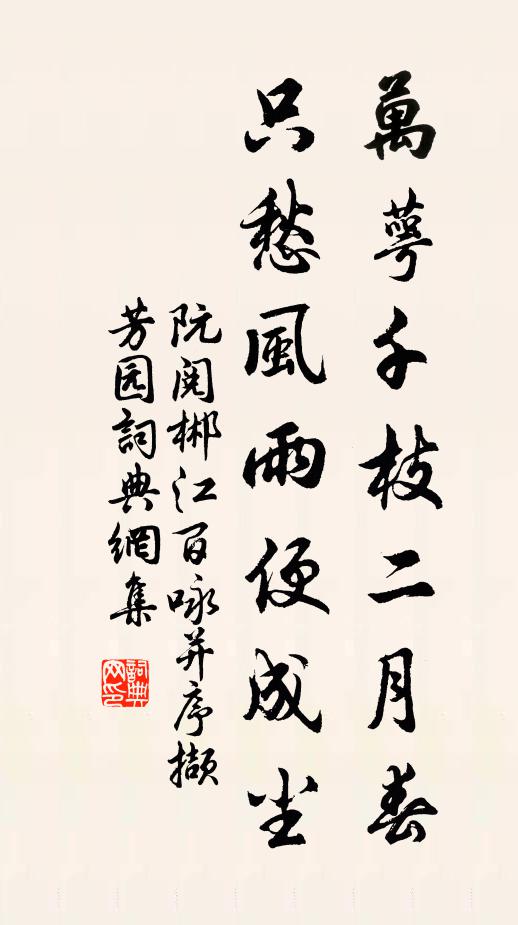 萬萼千枝二月春
只愁風雨便成尘
阮阅郴江百咏并序撷
芳园詞典網集
詞典网印